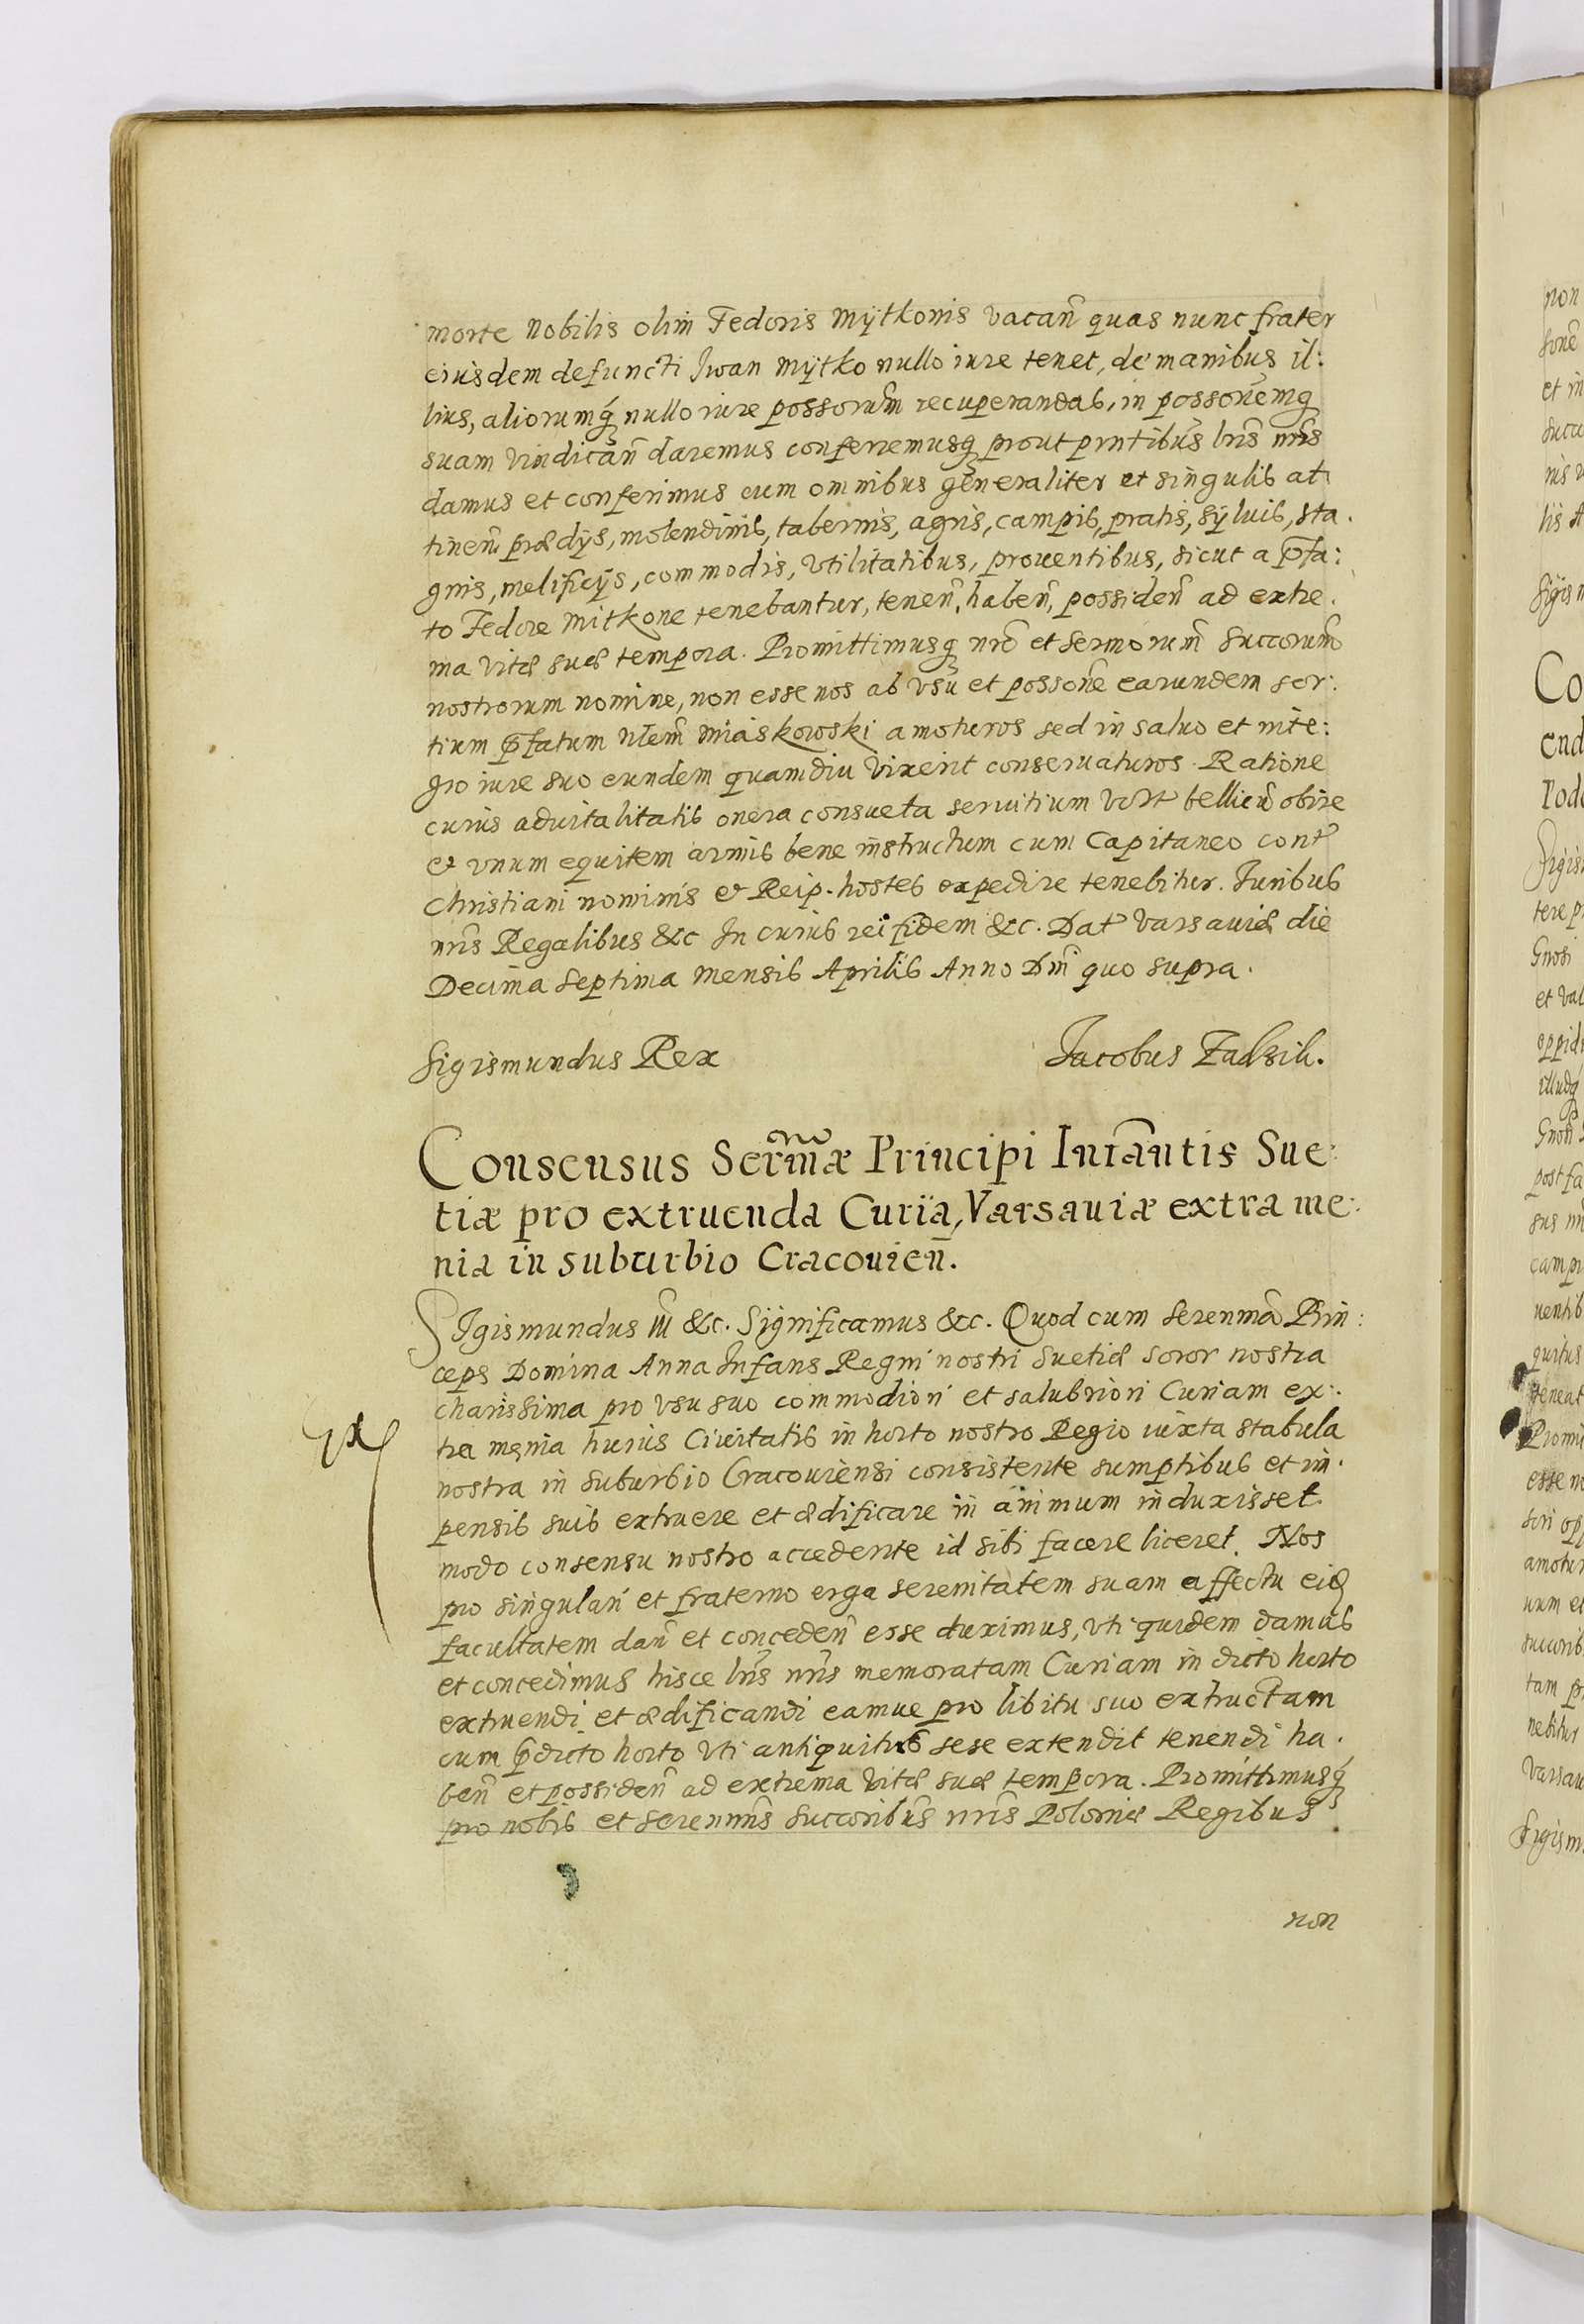 morte nobilis olim Fedoris Mÿtkonis vacan̄ quas nunc frater
eiusdem defuncti Iwan Mÿtko nullo iure tenet, de manibus il:
lius, aliorumq́ nullo iure possorum̄ recuperandas, in possonēmq
suam vindican̄ daremus conferremusq prout pn̄tibus lrīs nrīs
damus et conferimus cum omnibus gēneraliter et singulis at
tinen̄ prædÿs, molendinis, tabernis, agris, campis, pratis, sÿluis, sta.
gnis, melificÿs, commodis, vtilitatibus, prouentibus, sicut a p̄fa:
to Fedore Mitkone tenebantur, tenen̄, haben̄, possiden̄ ad extre.
ma vitæ suæ tempora. Promittimusq nrō et sermorum̄ succorum̄
nostrorum nomine, non esse nos ab vsu et possonē earundem sor:
tium p̄fatum nlem̄ Miaskowski amoturos sed in saluo et inte:
gro iure suo eundem quamdiu vixerit conseruaturos. Ratione
cuius aduitalitatis onera consueta seruitium vert bellicū obire
et vnum equitem armis bene instructum cum Capitaneo cont
Christiani nominis et Reip. hostes expedire tenebitur. Iuribus
nrīs Regalibus &c In cuius rei fidem &c. Dat Varsauiæ die
Decima Septima Mensis Aprilis Anno Dnī quo supra.
Sigismundus Rex Jacobus Zadzik.
Consensus Serm̄æ Principi Infāntis Sue:
tiæ pro extruenda Curia, Varsauiæ extra me:
nia in suburbio Cracouien̄.
SIgismundus III &c. Significamus &c. Quod cum Serenmā Prin:
ceps Domina Anna Infans Regni nostri Suetiæ soror nostra
charissima pro vsu suo commodiori et salubriori Curiam ex:
tra męnia huius Ciuitatis in horto nostro Regio iuxta stabula
nostra in suburbio Cracouiensi consistente sumptibus et im.
pensis suis extruere et ædificare in animum induxisset
modo consensu nostro accedente id sibi facere liceret. Nos
pro singulari et fraterno erga serenitatem suam affectu eiꝗ
facultatem dan̄ et conceden̄ esse duximus, vti quidem damus
et concedimus hisce lrīs nrīs memoratam Curiam in dicto horto
extruendi et ædificandi eamue pro libitu suo extructam
cum p̄dicto horto vti antiquitus sese extendit tenendi ha.
ben̄ et possiden̄ ad extrema vitæ suæ tempora. Promittimusq́
pro nobis et serenmīs succoribus nrīs Poloniæ Regibus
non